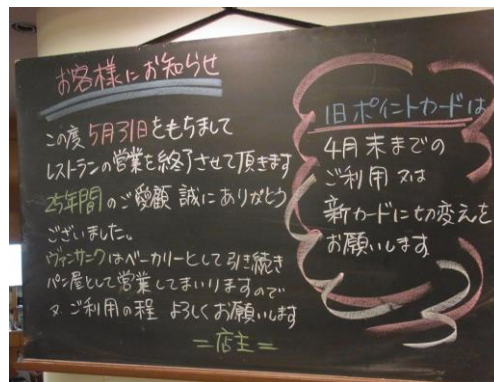 お客様にお知らせ
この度5月31日をもちまして
レストランの営業を終了させて頂きます
25年間のご愛顧 誠にありがとう
ございました。
ヴァンサンクはベーカリーとして引き続き
パン屋として営業してまいりますので
又、ご利用の程 よろしくお願いします
=店主=
旧ポイントカードは
4月末までの
ご利用又は
新カードに切り変えを
お願いします